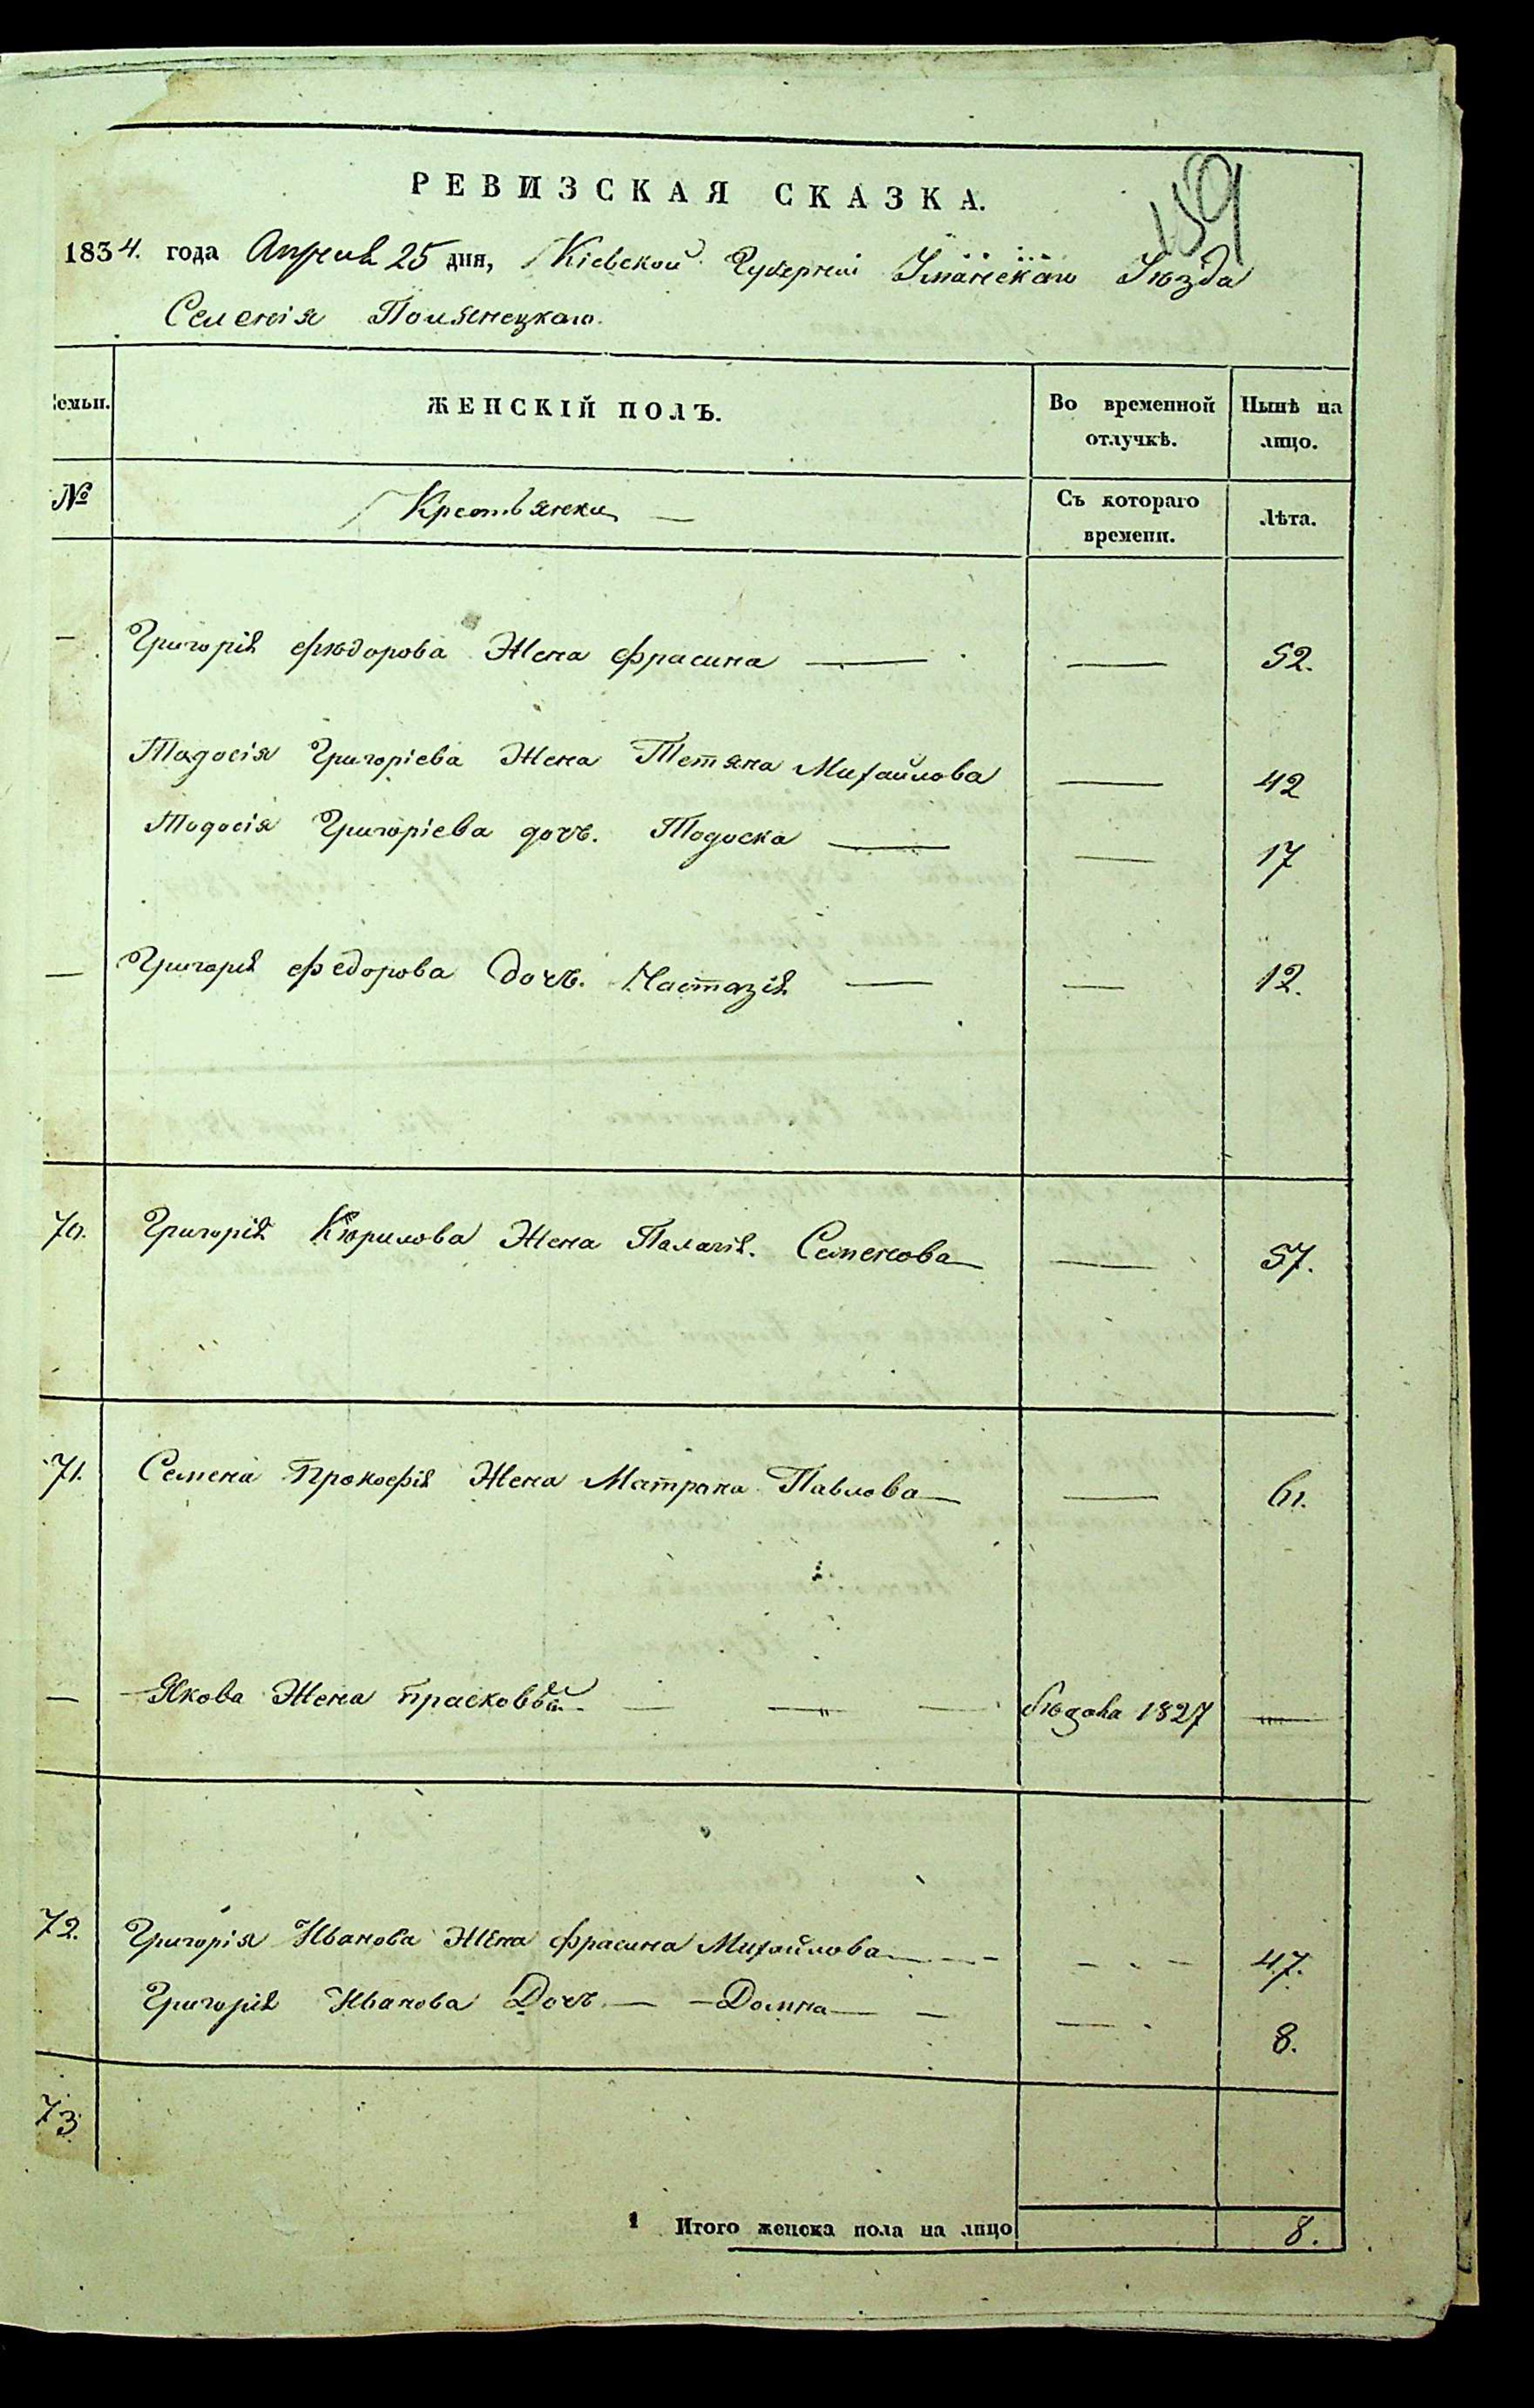 159
РЕВИЗСКАЯ СКАЗКА.
1834. года Апреля 25 дня, Кіевской Губерніи Уманскаго Уезда
Селенія Полянецкаго.
Семьи. ЖЕНСКІЙ ПОЛЪ. Во временной отлучкѣ. Нынѣ на лицо.
№ Крестьянки — Съ котораго времени. Лѣта.
— Григорія Фюдорова Жена Фрасина — — 52.
Тодосія Григоріева Жена Тетяна Михайлова — 42
Тодосія Григоріева дочь. Тодоска — — 17
— Григорія Федорова Дочь. Настазія — — 12.
70. Григорія Кюрилова Жена Палагія. Семенова — — 57.
71. Семена Прокофія Жена Матрона Павлова — — 61.
— Якова Жена Прасковья — — — 1827 —
72. Григорія Иванова Жена Фрасина Михайлова — — 47.
Григорія Иванова Дочь — — Домна — — — 8.
73
1 Итого женска пола на лицо 8.